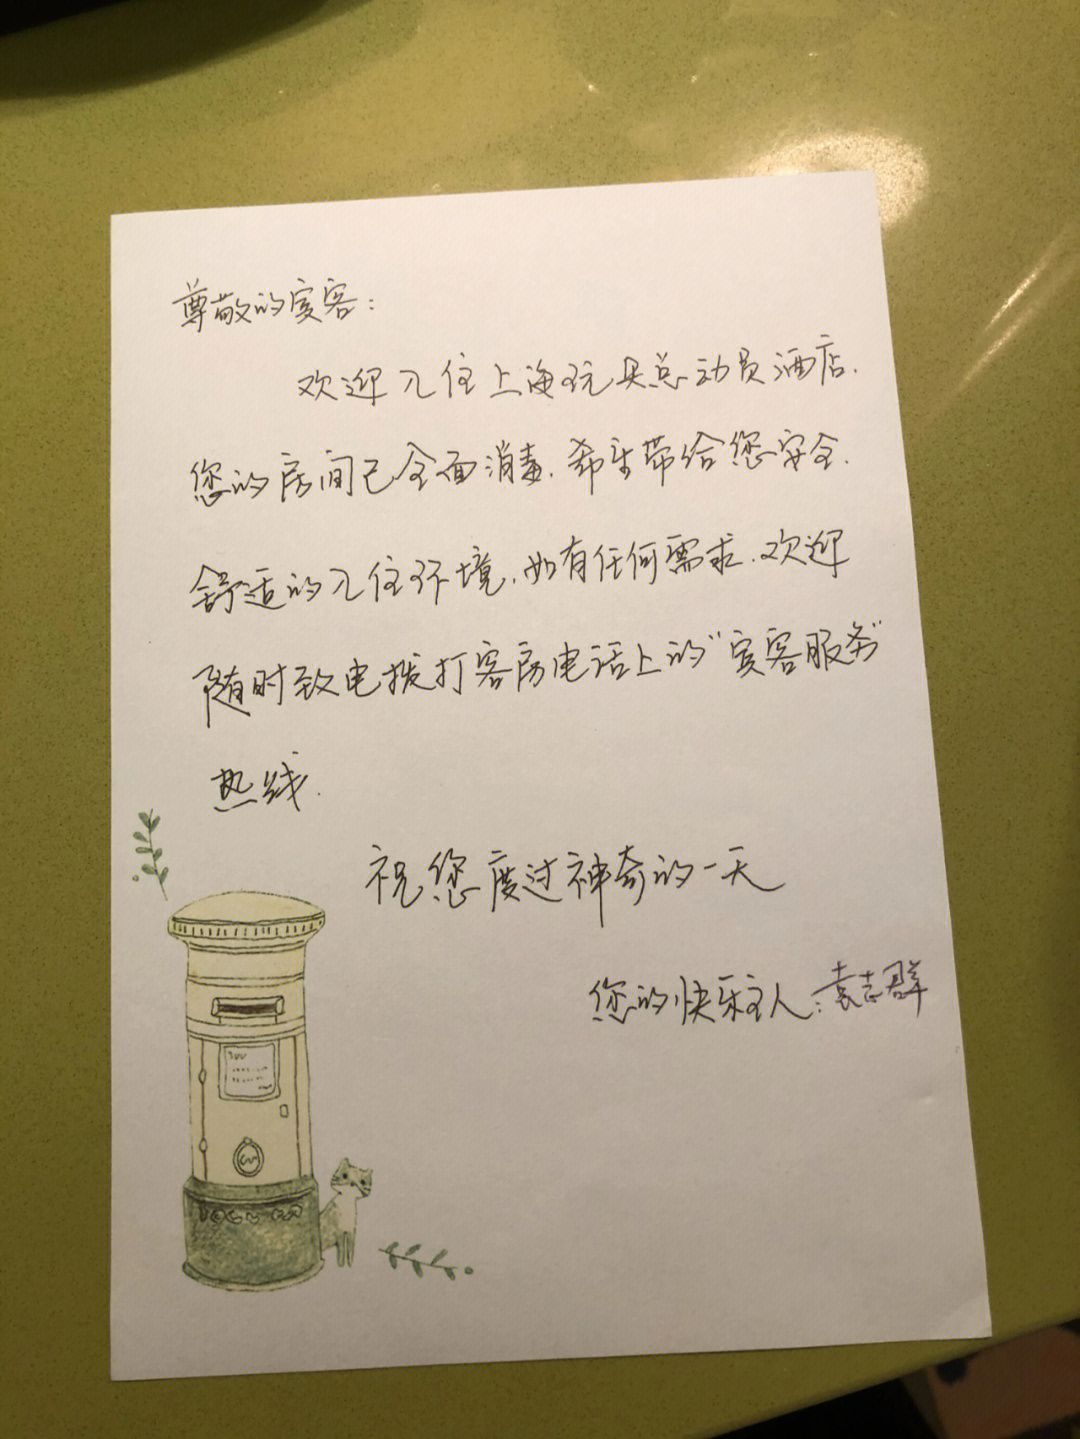 尊敬的宾客：
欢迎入住上海玩具总动员酒店.
您的房间已全面消毒.希望带给您安全.
舒适的入住环境.如有任何需求.欢迎
随时致电拨打客房电话上的“宾客服务”
热线.
祝您度过神奇的一天
您的快乐主人：袁志群